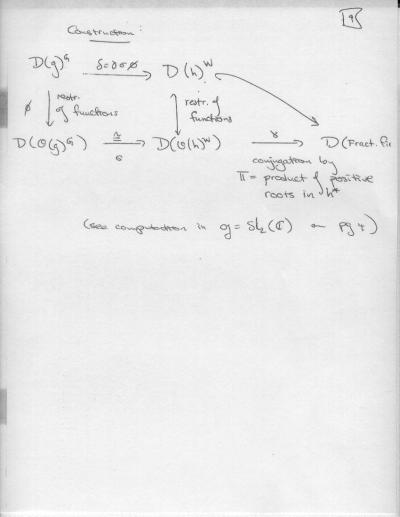 9
Construction:
D(g)^G δ=γσφ D(h)^W
φ restr. of functions restr. of functions
D(O(g)^G) ≅ σ D(O(h)^W) γ D(Fract. fie
conjugation by
π = product of positive
roots in h*
(see computation in g = sl₂(ℂ) on pg 4)